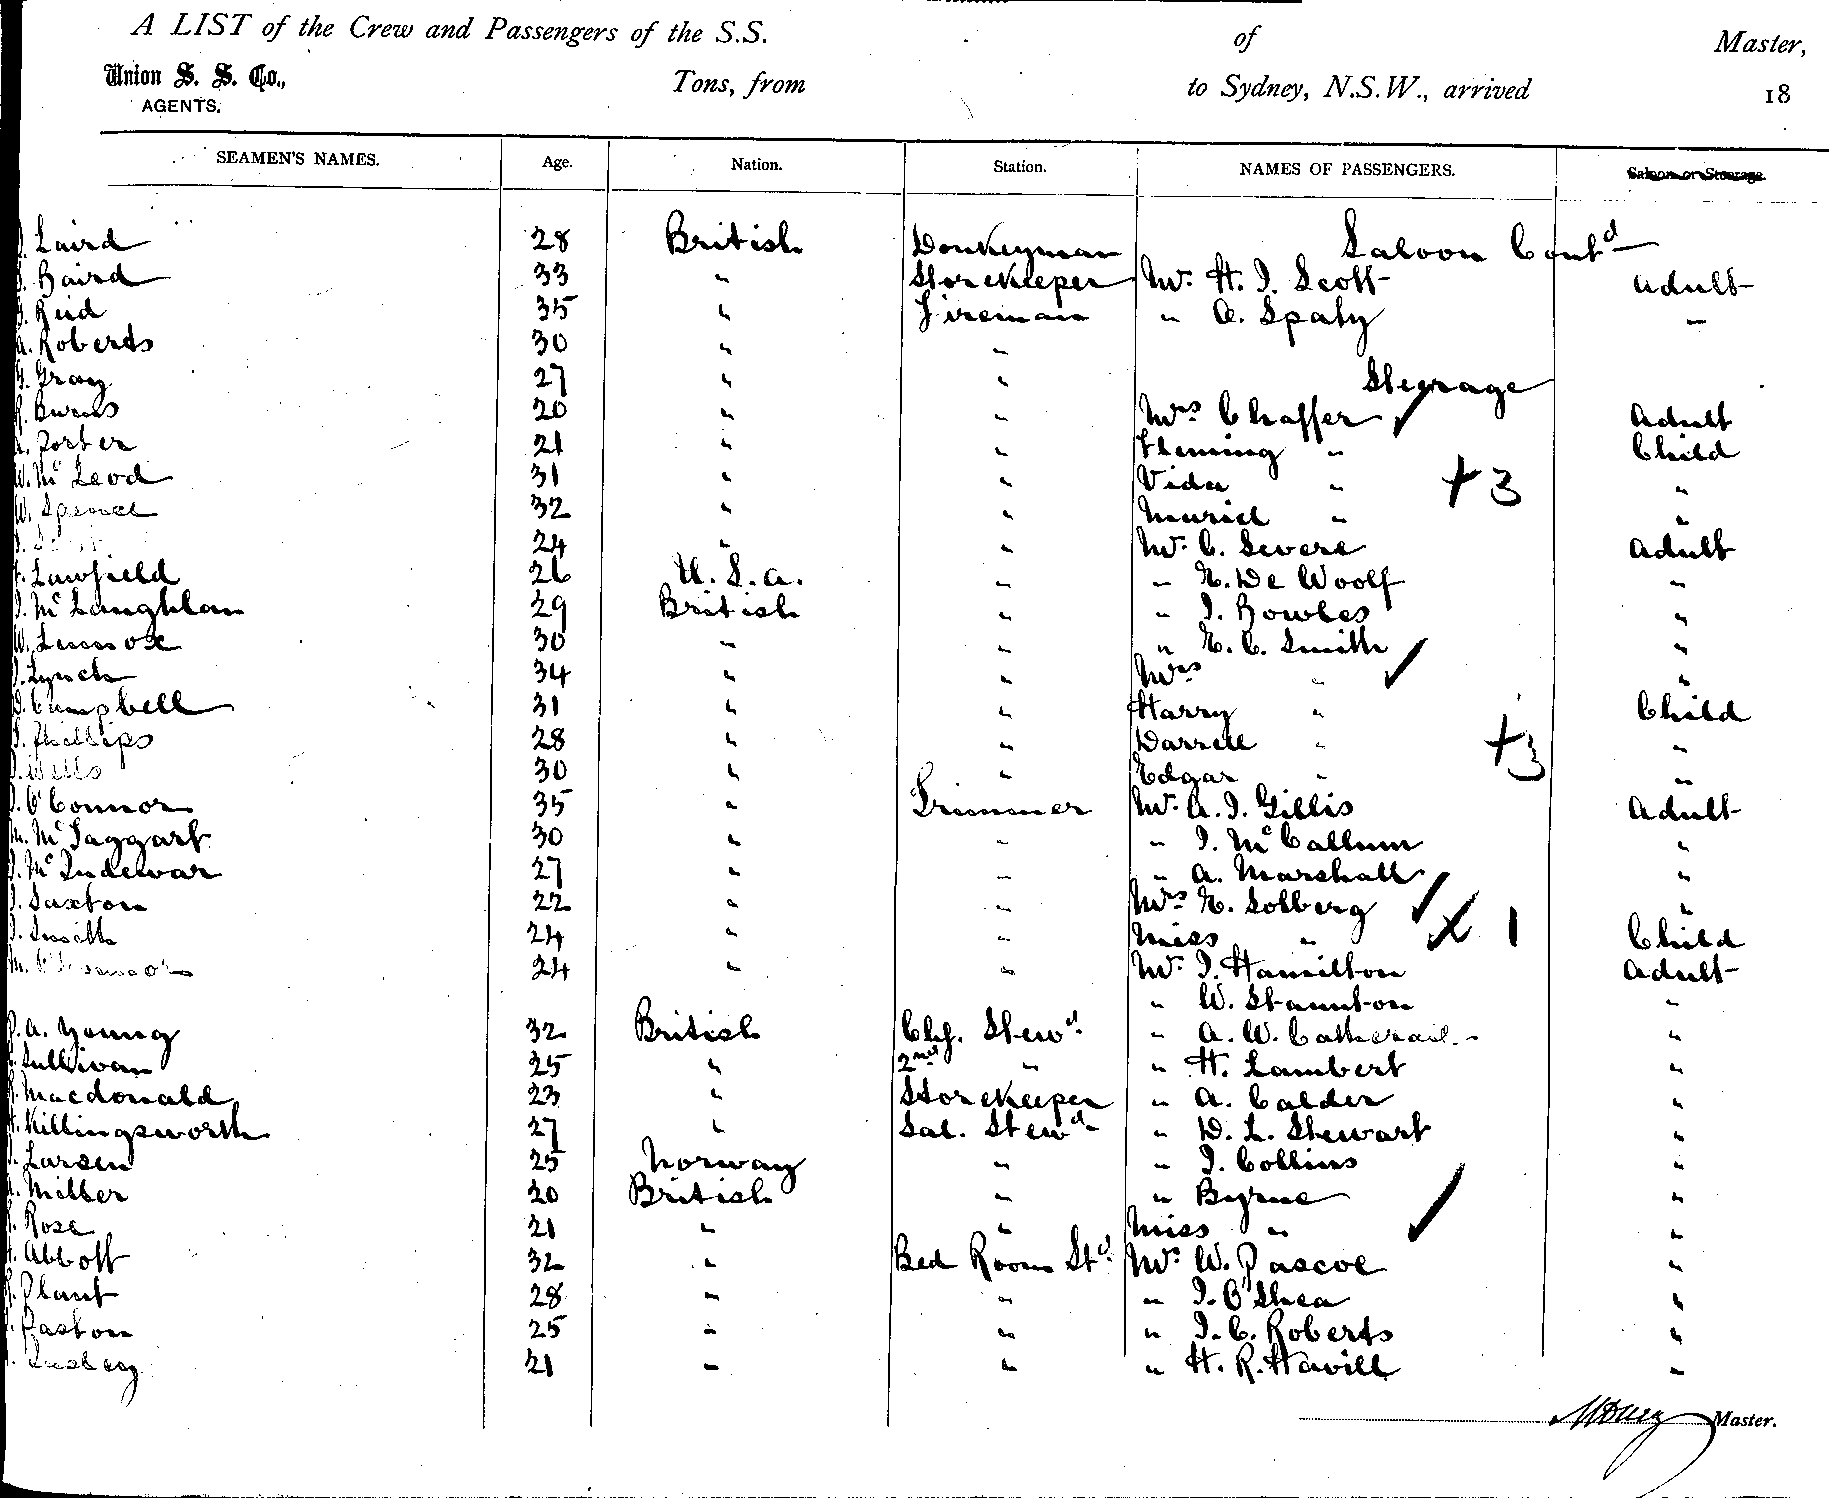 A LIST of the Crew and Passengers of the S.S. of Master,
Union S. S. Co., Tons, from to Sydney, N.S.W., arrived 18
AGENTS.
SEAMEN'S NAMES. Age. Nation. Station. NAMES OF PASSENGERS. Saloon or Steerage.
Laird 28 British Donkeyman Saloon Contd
Baird 33 " Storekeeper Mr. H. J. Scott Adult
Reid 35 " Fireman " A. Spaty "
A. Roberts 30 " "
Gray 27 " " Steerage
Burns 20 " " Mrs Chaffer Adult
Porter 21 " " Fleming " Child
W. McLeod 31 " " Vida " + 3 "
W. Spence 32 " " Muriel " "
24 " " Mr. C. Severe Adult
Lawfield 26 U. S. A. " " E. De Woolf "
J. McLaughlan 29 British " " J. Bowles "
W. Lennox 30 " " " E. C. Smith "
J. Lynch 34 " " Mrs " "
Campbell 31 " " Harry " Child
J. Phillips 28 " " Darrell " + 3 "
J. Wells 30 " " Edgar " "
J. O'Connor 35 " Trimmer Mr. A. J. Gillis Adult
M. McTaggart 30 " " " J. McCallum "
J. McIndewar 27 " " " A. Marshall "
J. Saxton 22 " " Mrs E. Solberg "
J. Smith 24 " " Miss " X 1 Child
M. O'Connor 24 " " Mr. J. Hamilton Adult
" W. Staunton "
A. Young 32 British Chf. Stewd " A. W. Catherail "
Sullivan 25 " 2nd " " H. Lambert "
Macdonald 23 " Storekeeper " A. Calder "
Killingsworth 27 " Sal. Stewd " D. L. Stewart "
Larsen 25 Norway " " J. Collins "
Miller 20 British " " Byrne "
Rose 21 " " Miss " "
Abbott 32 " Bed Room Std Mr. W. Pascoe "
Plant 28 " " " J. O'Shea "
Paston 25 " " " J. C. Roberts "
21 " " " H. R. Havill "
Master.